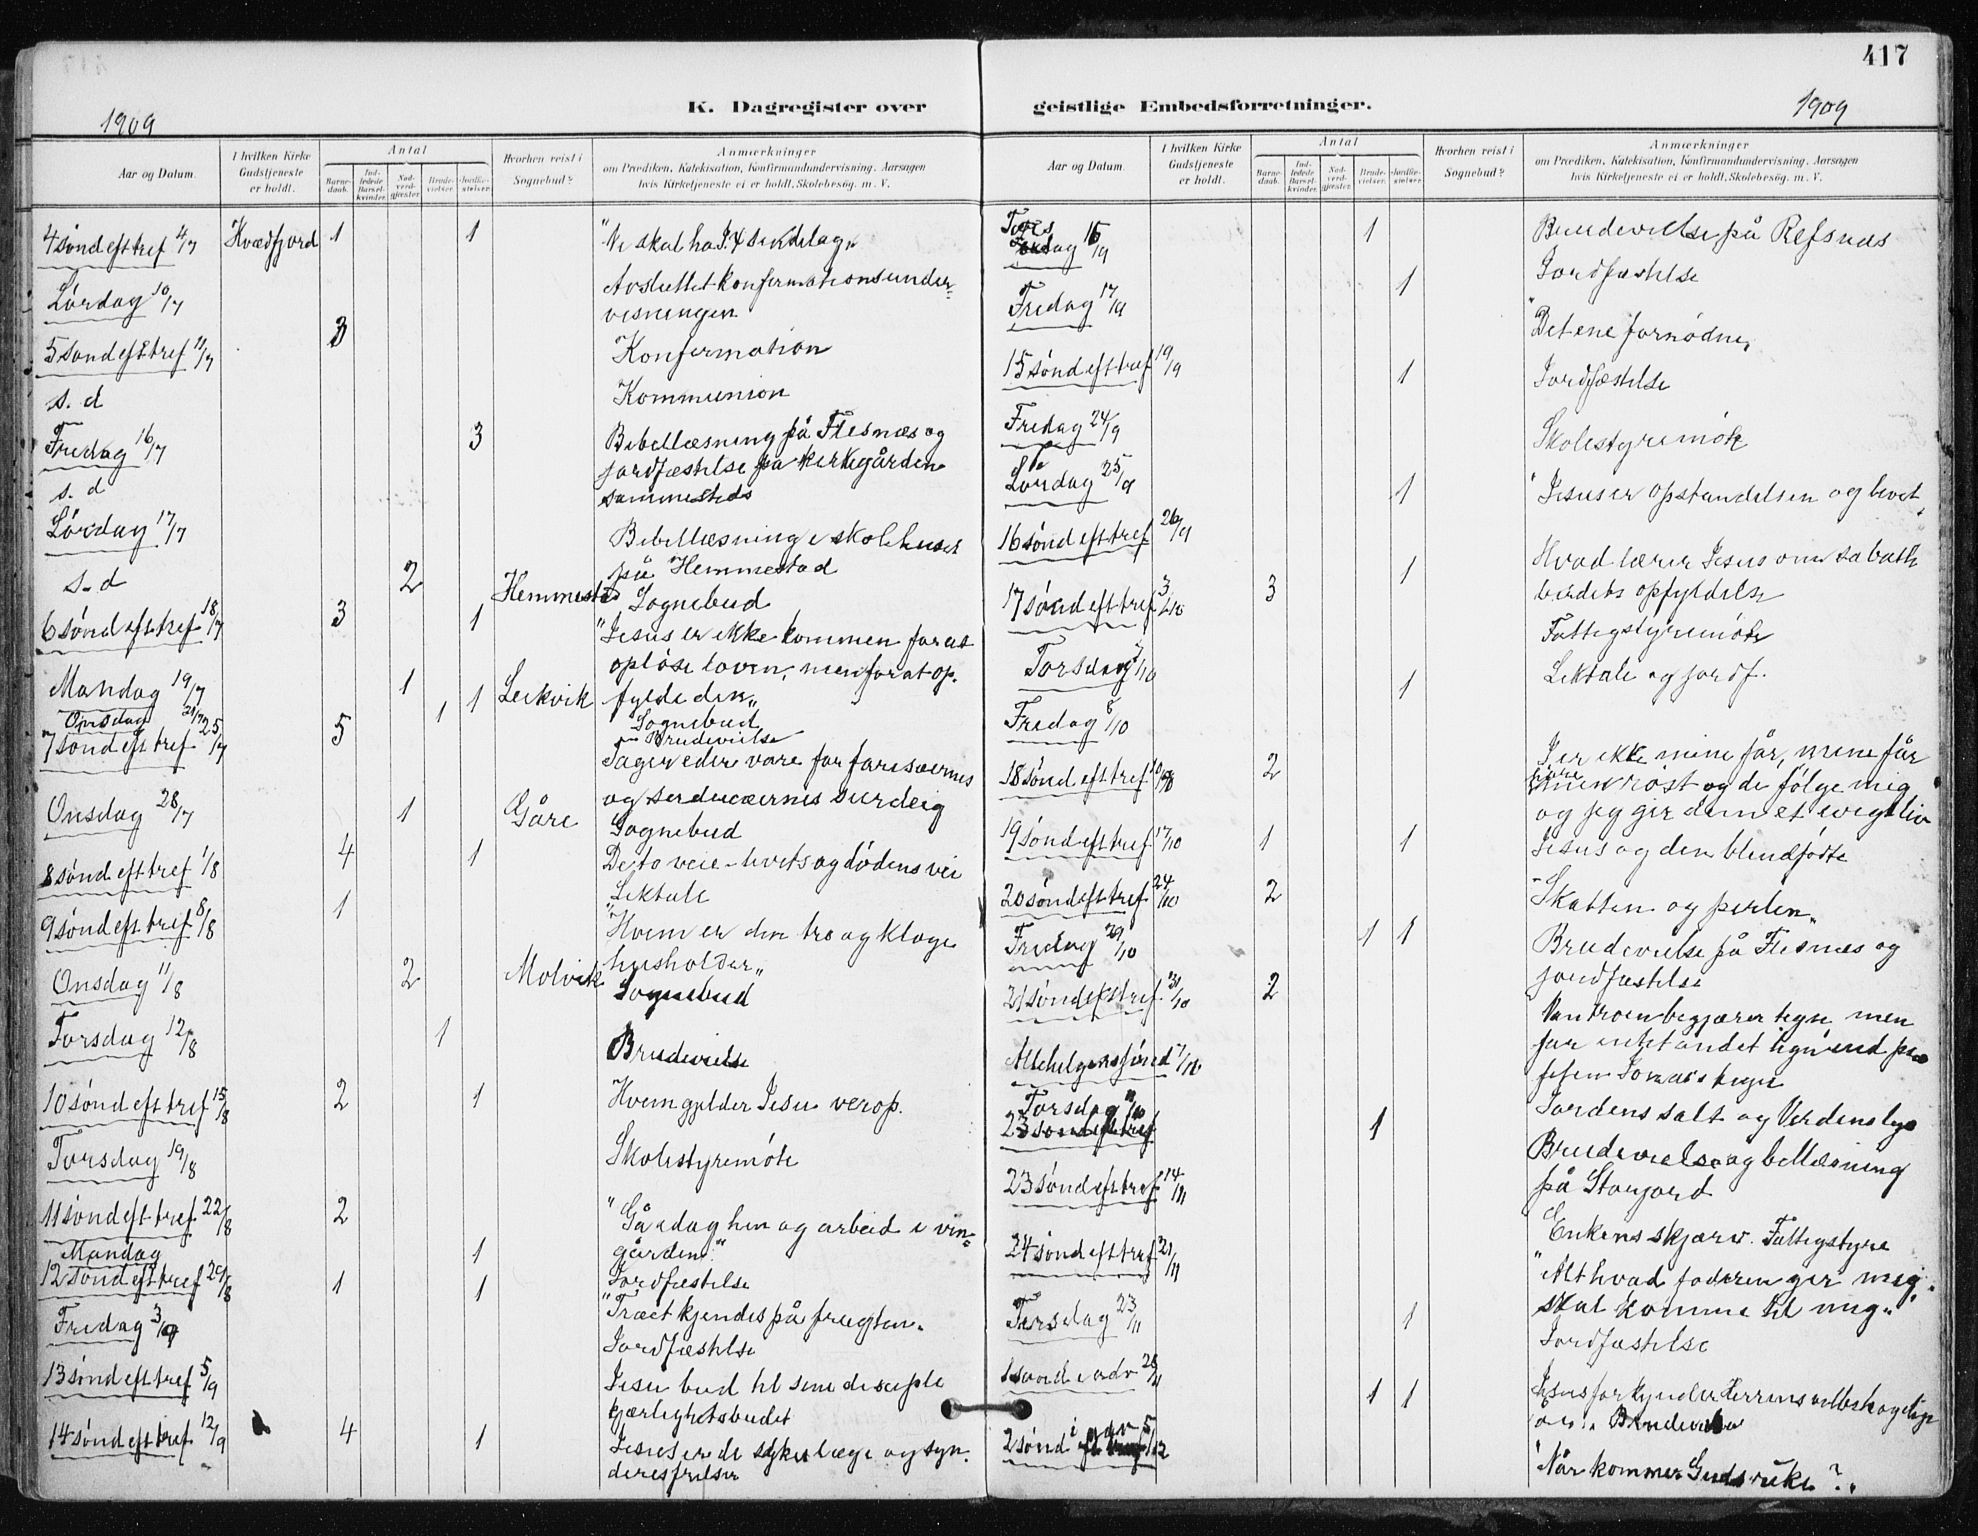 417
K. Dagregister over
geistlige Embedsforretninger.
1909
1909
Aar og Datum.
I hvilken Kirke Gudstjeneste er holdt.
Antal
Barne-daab.
Ind-ledede Barsel-kvinder.
Nad-verd-gjæster.
Brude-vielser.
Jordfæ-stelser.
Hvorhen reist i Sognebud?
Anmærkninger
om Prædiken, Katekisation, Konfirmandundervisning, Aarsagen
hvis Kirketjeneste ei er holdt, Skolebesög. m. V.
4 sönd eft tref 4/7 Kvædfjord 1 1 "Vi skal ha
Lördag 10/7 Avsluttet konfirmationsunder-
visningen
5 sönd eft tref 11/7 3 Konfirmation
s. d Kommunion
Fredag 16/7 3 Bibellæsning på Flesnæs og
jordfæstelse på kirkegården
sammesteds
s. d
Lördag 17/7 Bibellæsning i skolehuset
på Hemmestad
s. d 2 Hemmestad Sognebud
6 sönd eft tref 18/7 3 1 "Jesus er ikke kommen for at
oplöse loven, men for at op-
fylde den"
Mandag 19/7 1 1 Leikvik Sognebud
Onsdag 21/7 1 Brudevielse
7 sönd eft tref 25/7 5 Tager eder vare for farisæernes
og saducæernes surdeig
Onsdag 28/7 1 Gåre Sognebud
8 sönd eft tref 1/8 4 1 De to veie - livets og dödens vei
Lektale
9 sönd eft tref 8/8 1 "Hvem er den tro og kloge
husholder"
Onsdag 11/8 2 Molvik Sognebud
Torsdag 12/8 1 Brudevielse
10 sönd eft tref 15/8 2 1 Hvem gjelder Jesu verop.
Torsdag 19/8 Skolestyremöte
11 sönd eft tref 22/8 2 "Gå idag hen og arbeid i vin-
gården."
Mandag 1 Jordfæstelse
12 sönd eft tref 29/8 1 1 "Træet kjendes på frugten"
Fredag 3/9 Jordfæstelse
13 sönd eft tref 5/9 Jesu bud til sine disciple
kjærlighetsbudet
14 sönd eft tref 12/9 4 1 Jesus er de sykes læge og syn-
deres frelser
Aar og Datum.
I hvilken Kirke Gudstjeneste er holdt.
Antal
Barne-daab.
Ind-ledede Barsel-kvinder.
Nad-verd-gjæster.
Brude-vielser.
Jordfæ-stelser.
Hvorhen reist i Sognebud?
Anmærkninger
om Prædiken, Katekisation, Konfirmandundervisning, Aarsagen
hvis Kirketjeneste ei er holdt, Skolebesög. m. V.
Torsdag 16/9 1 Brudevielse på Refsnæs
Fredag 17/9 1 Jordfæstelse
15 sönd eft tref 19/9 "Det ene fornödne"
Fredag 24/9 1 Jordfæstelse
Lördag 25/9 Skolestyremöte
16 sönd eft tref 26/9 1 "Jesus er opstandelsen og livet"
17 sönd eft tref 3/10 3 1 Hvad lærer Jesus om sabats
budets opfyldelse
Torsdag 7/10 Fattigstyremöte
Fredag 8/10 1 Liktale og jordf.
18 sönd eft tref 10/10 2 I er ikke mine får, mine får
höre min röst og de fölge mig
og jeg gir dem et evigt liv
19 sönd eft tref 17/10 1 1 Jesus og den blindfödte
20 sönd eft tref 24/10 2 "Skatten og perlen"
Fredag 29/10 1 1 Brudevielse på Flesnæs og
jordfæstelse
21 sönd eft tref 31/10 2 Vantroen begjærer tegn men
får intet andet tegn end pro
feten Jonas's tegn
Allehelgenssönd 7/11 Jordens salt og Verdens lys
Torsdag 11/11 1 Brudevielse og bibellæsning
på Storjord
23 sönd eft tref 14/11 Enkens skjærv. Fattigstyre
24 sönd eft tref 21/11 "Alt hvad faderen gir mig
skal komme til mig"
Tirsdag 23/11 1 Jordfæstelse
1 sönd i adv 28/11 1 1 Jesus forkynder Herrens velbehagelige
år". Brudevielse
2 sönd i adv 5/12 "Når kommer Guds rike?"